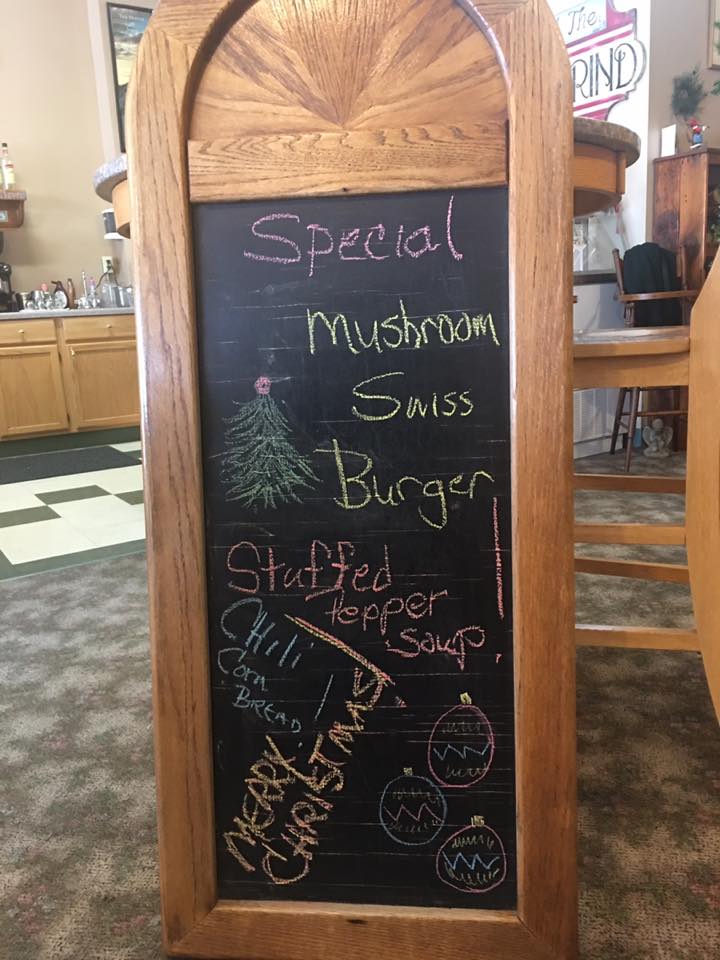 The
RIND
Special
Mushroom
Swiss
Burger
Stuffed
Pepper
Soup
CHili
Corn
BREAD
MERRY
CHRISTMAS